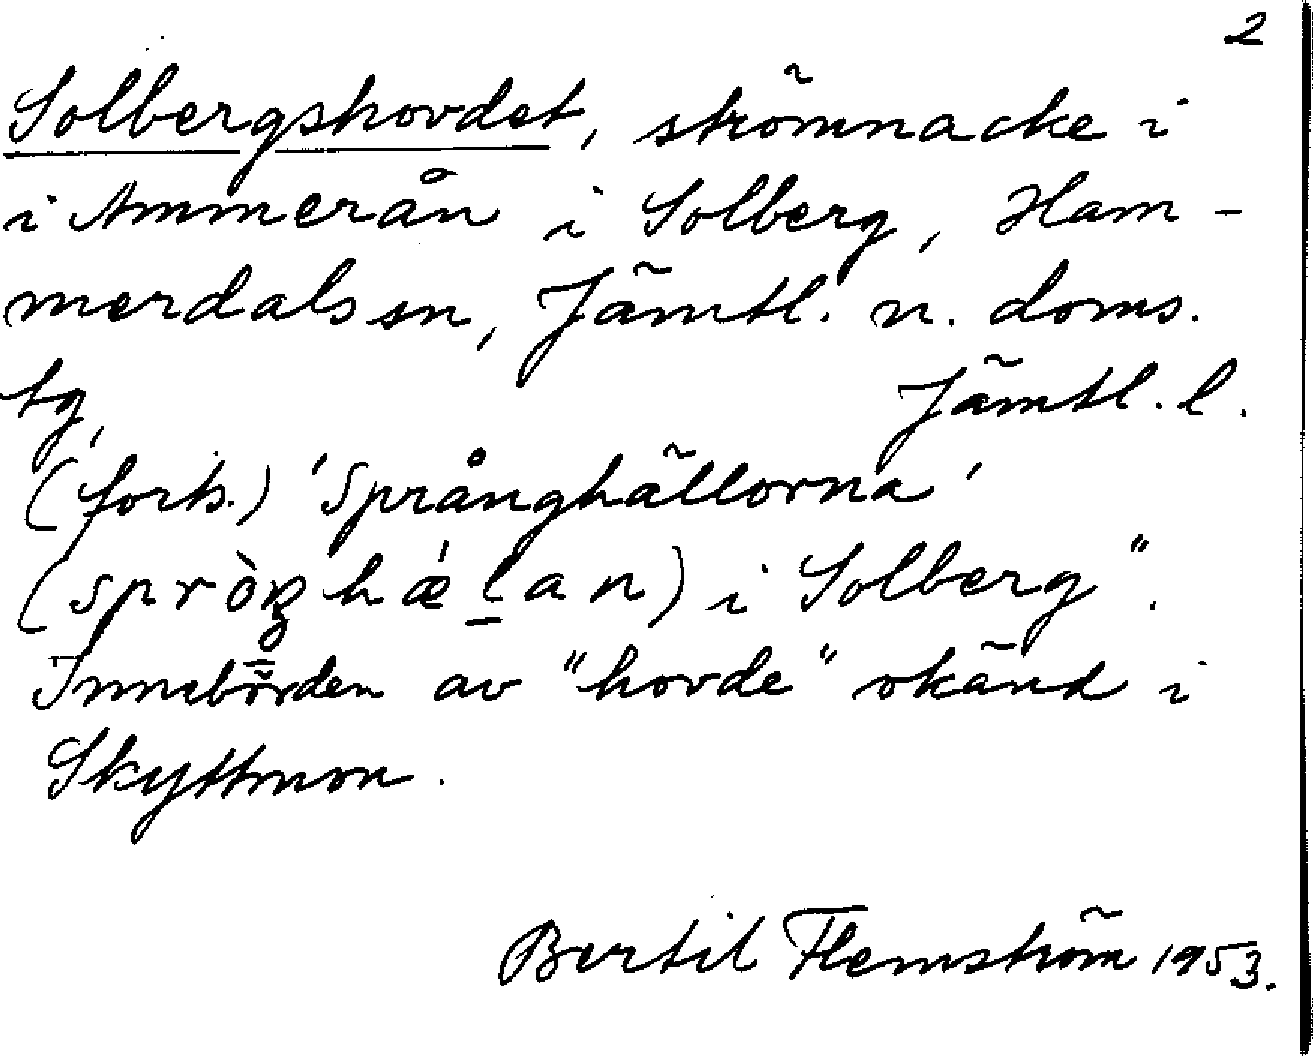 2
Solbergshovdet, strömnacke i
i Ammerån i Solberg, Ham-
merdals sn, Jämtl. n. doms.
tg, Jämtl. l.
(forts.) 'Språnghällorna'
(spròŋhǽḷan) i Solberg".
Innebörden av "hovde" okänd i
Skyttmon.
Bertil Flemström 1953.